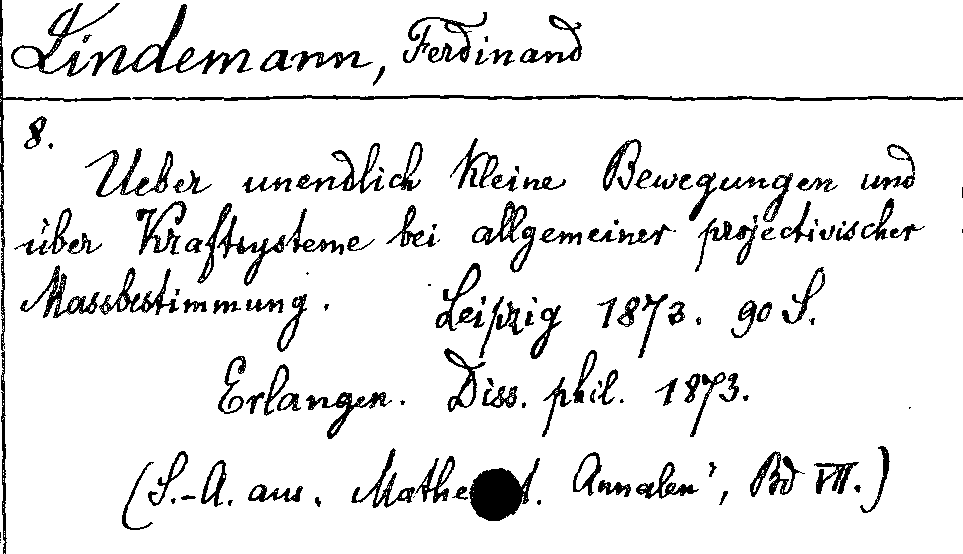 Lindemann, Ferdinand
8.
Ueber unendlich kleine Bewegungen und
über Kraftsysteme bei allgemeiner projectivischer
Massbestimmung. Leipzig 1873. 90 S.
Erlangen. Diss. phil. 1873.
(S.-A. aus. Annalen", Bd VII.)